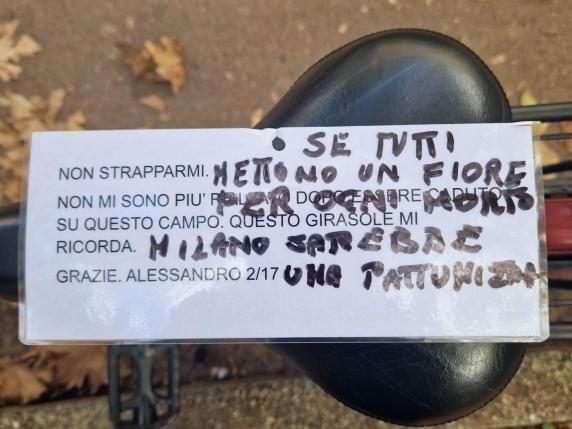 • SE TUTTI
NON STRAPPARMI. METTONO UN FIORE
NON MI SONO PIU' DOPO ESSERE CADUTO
PER OGNI MORTO
SU QUESTO CAMPO. QUESTO GIRASOLE MI
RICORDA. MILANO SAREBBE
GRAZIE. ALESSANDRO 2/17 UNA PATTUMIERA